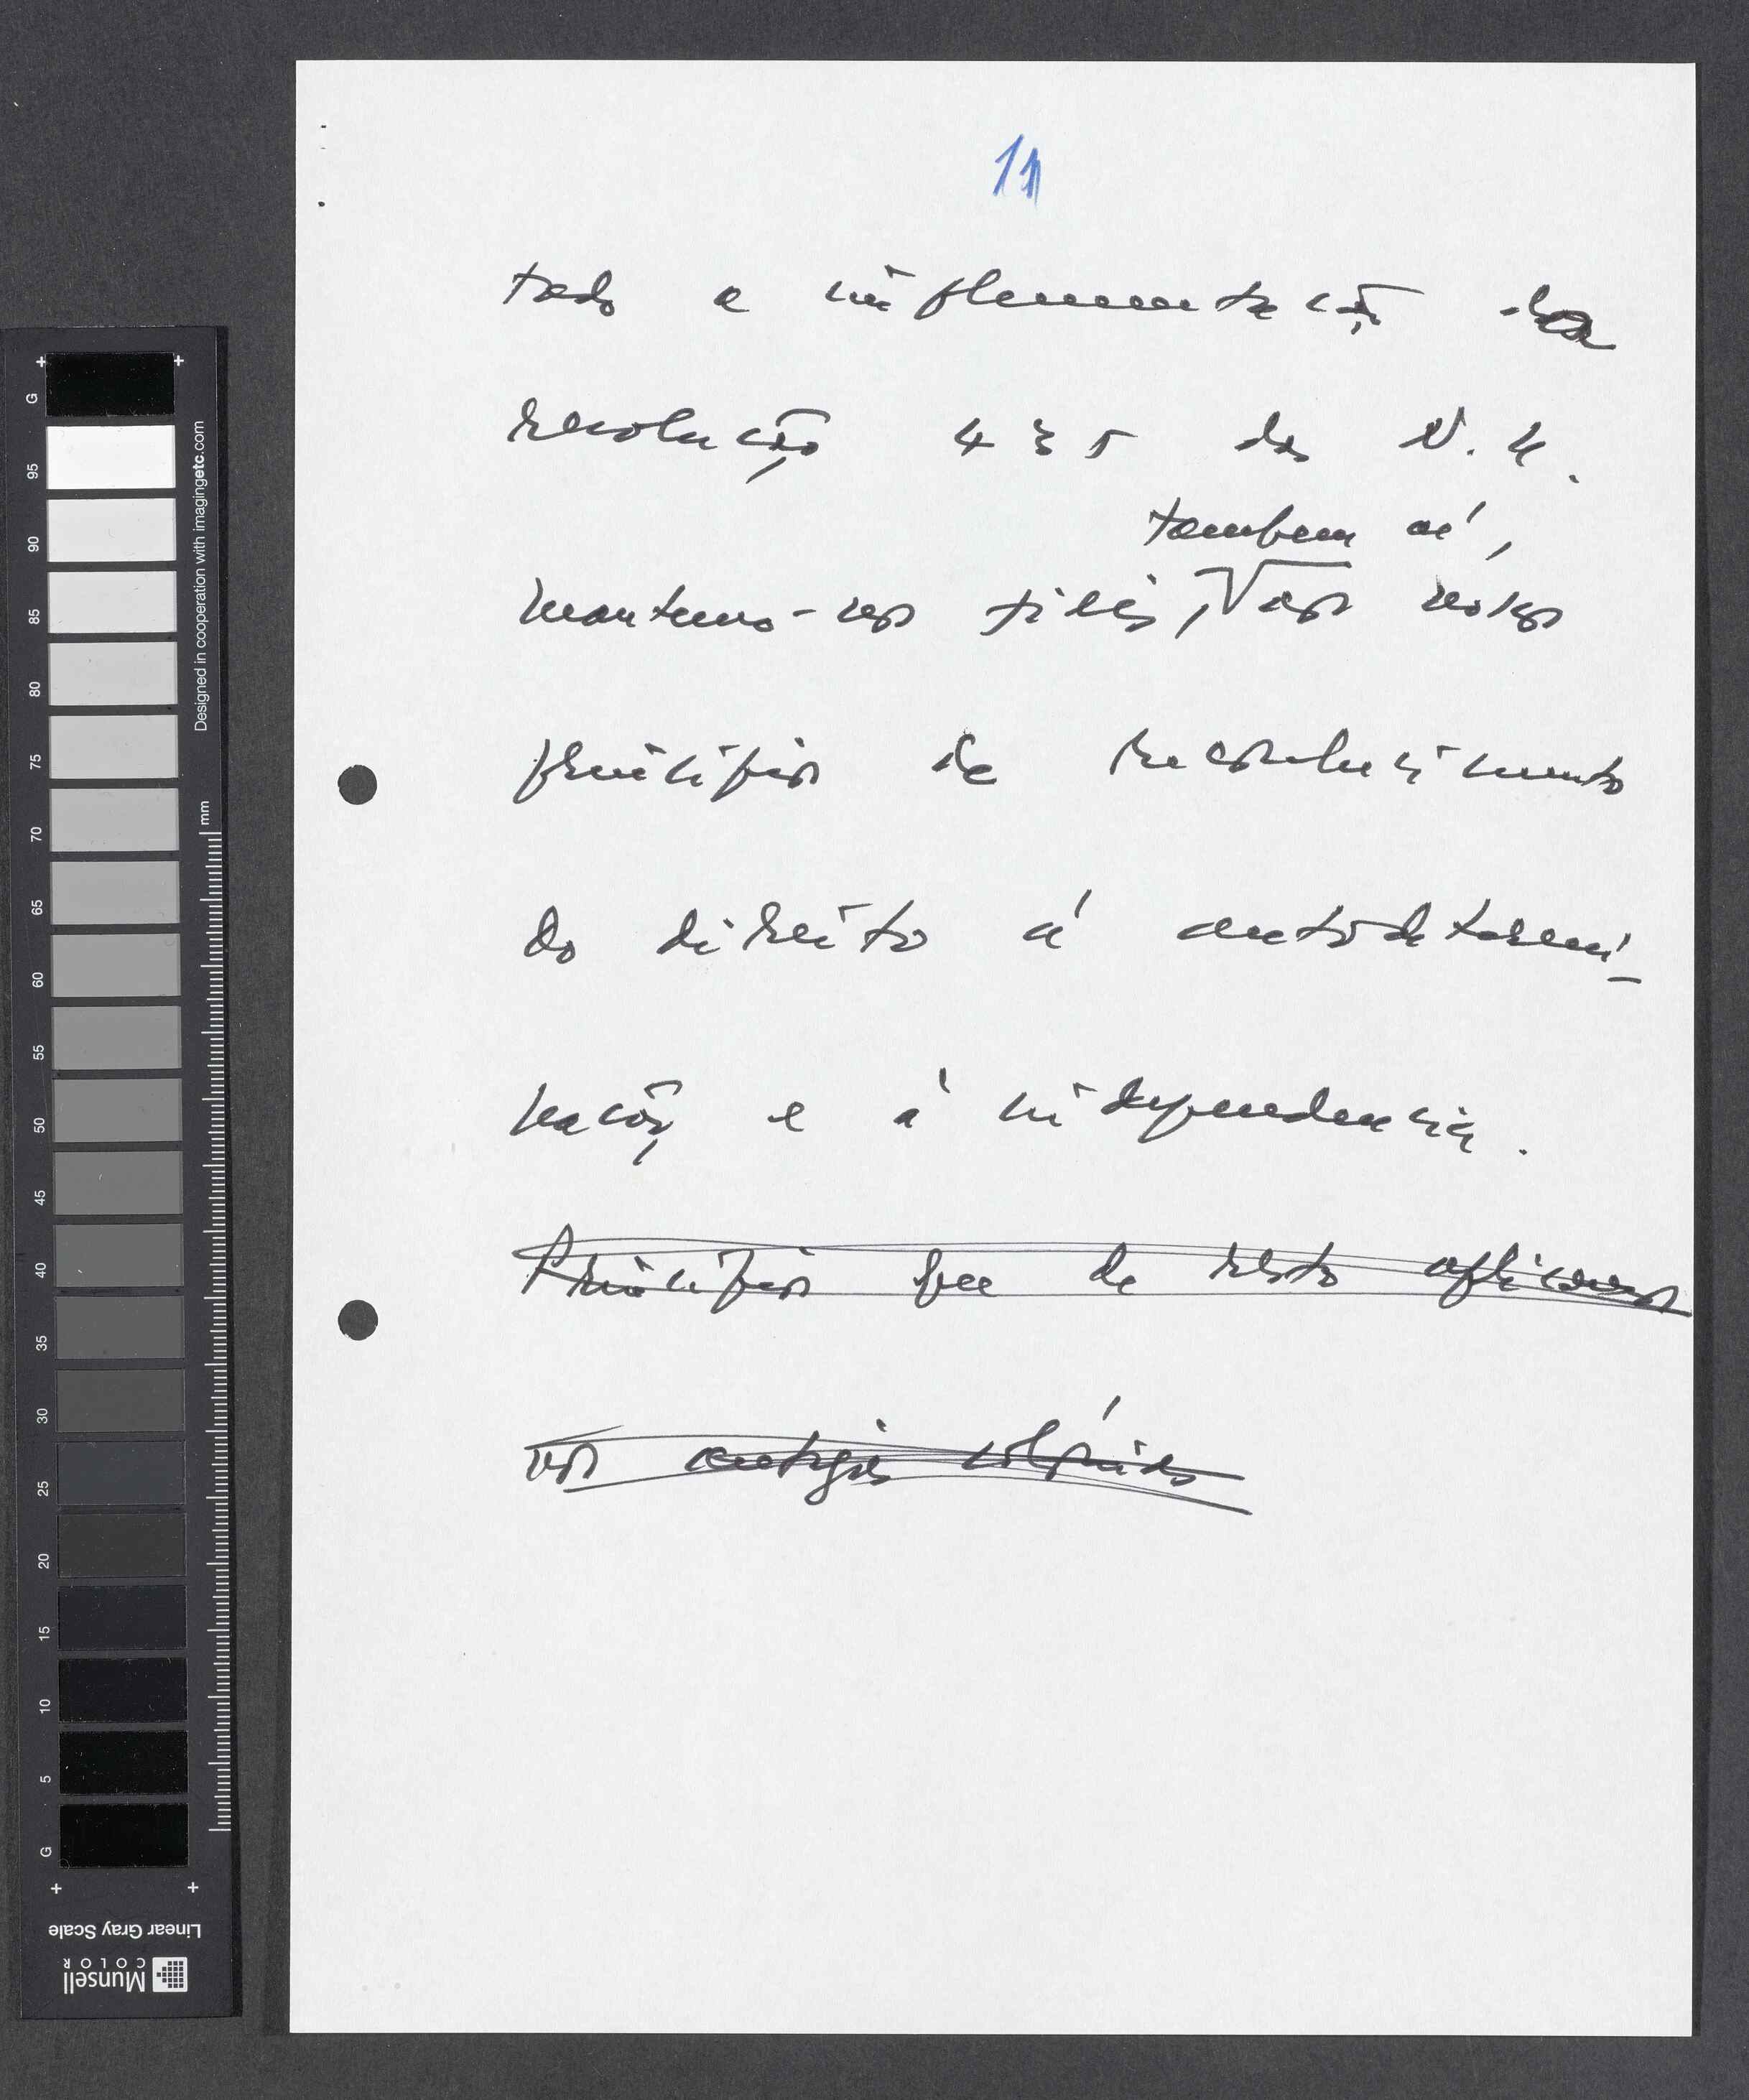 11
tado a implementação da
resolução 435 das N.U.
tambem aí,
Mantemo-nos fieis, aos nossos
princípios de reconhecimento
do direito á autodetermi-
nação e á independencia.
Princípios que de resto aplicamos
nas antigas colónias
G
95
90
85
80
75
70
65
60
55
50
45
40
35
30
25
20
15
10
5
G
mm
Designed in cooperation with imagingetc.com
Linear Gray Scale
Munsell
COLOR